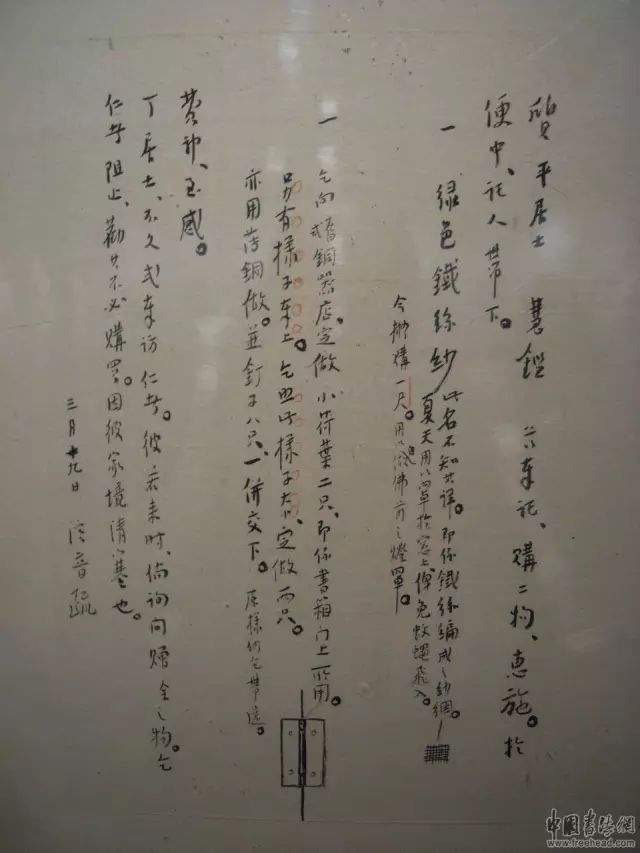 質平居士 慧鑑 茲奉託、購二物、惠施。於
便中、託人帶下。
一 綠色鐵絲紗 此名不知其詳。即係鐵絲編成之紗網。
夏天用以罩於窗上、俾免蚊蠅飛入。
今擬購一尺。用以做佛前之燈罩。
一 乞向舊銅器店、定做小荷葉二只、即係書箱门上所用。
另有樣子奉上。乞照此樣子大小定做兩只。
亦用薄銅做。並釘子八只、一併交下。原樣仍乞帶還。
費神、至感。
丁居士、不久或來訪仁者。彼若来時、倘詢问贈余之物、乞
仁者阻止、勸其不必購買。因彼家境清寒也。
三月十九日 演音疏
中國書法網
www.freehead.com